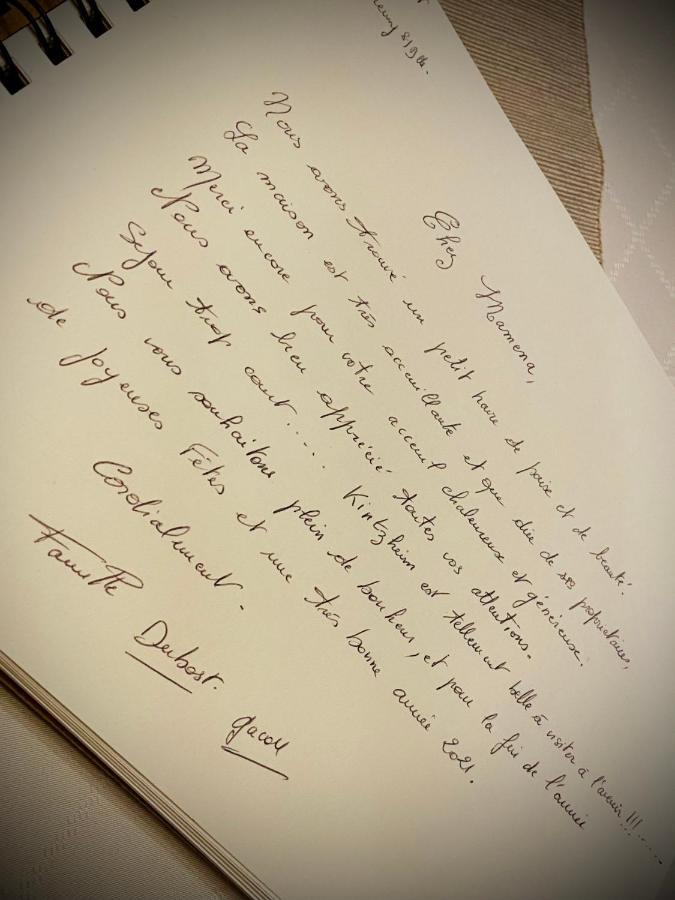 8/9th.
Chez Mamena,
Nous avons trouvé un petit havre de paix et de beauté.
La maison est très acceuillante et que dire de ses propriétaires,
Merci encore pour votre acceuil chaleureux et généreuse.
Nous avons bien apprécié toutes vos attentions.
Séjour trop court..... Kintzheim est tellement belle à visiter à l'avenir!!!......
Nous vous souhaitons plein de bonheur, et pour la fin de l'année
de joyeuses Fêtes et une très bonne année 2021.
Cordialement.
Famille Dubost.
Gacon